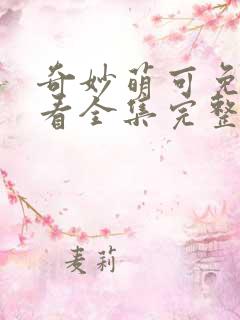 奇妙萌可免
看全集完整
麦莉